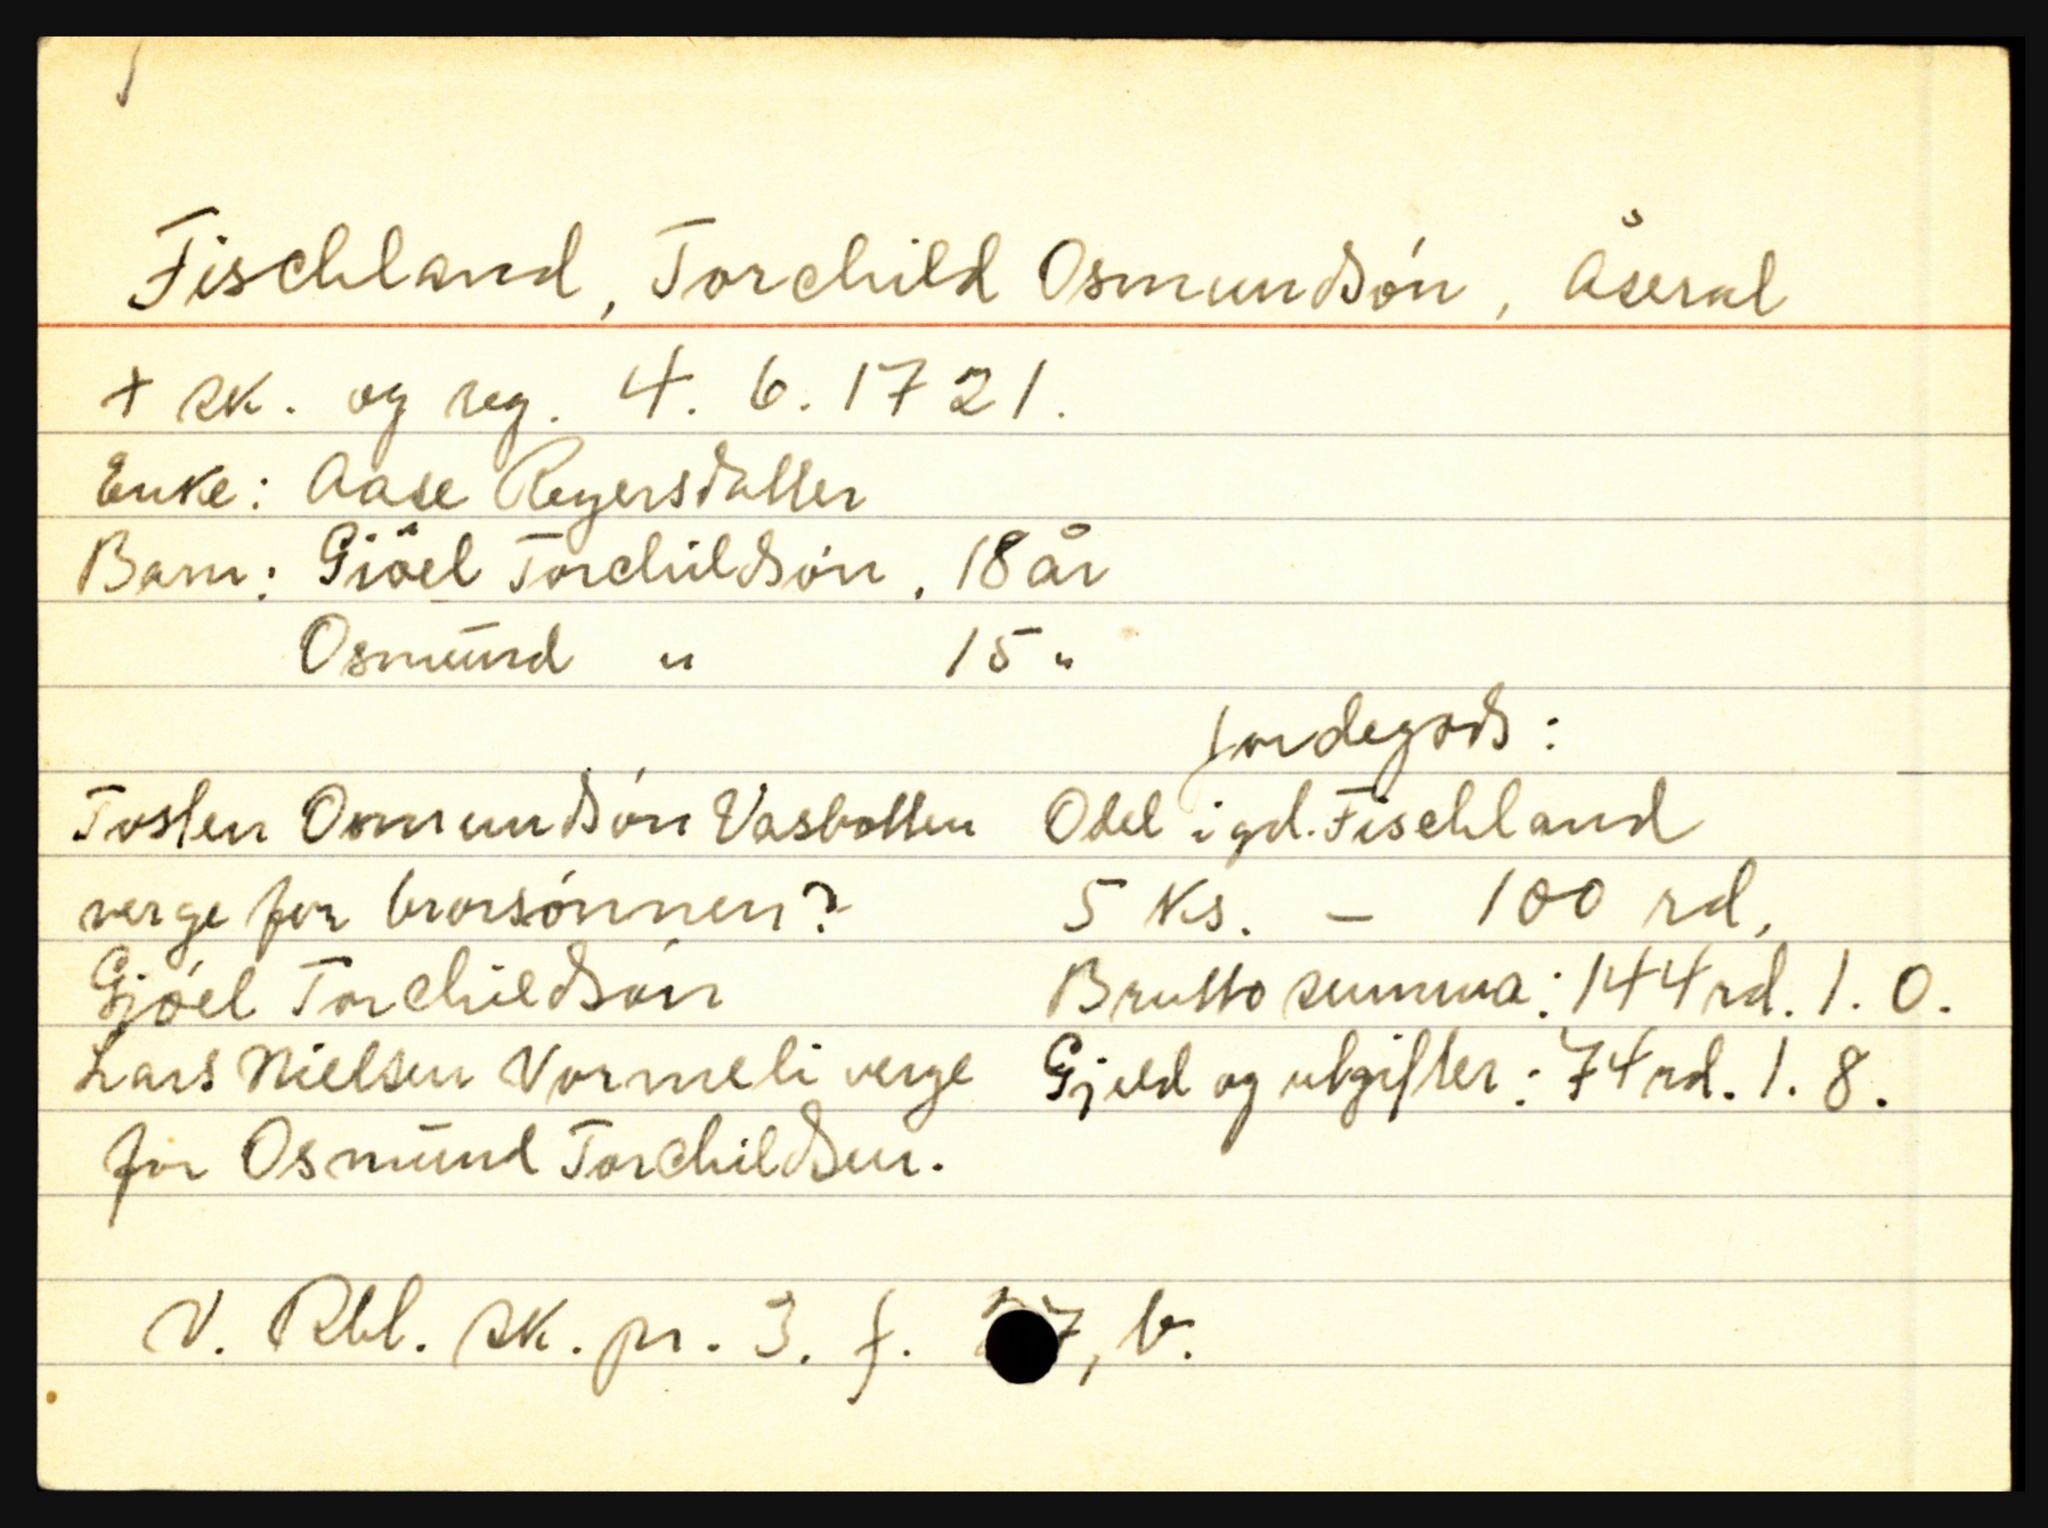 Fischland, Torchild Osmundsón, Åseral
+ sk. og reg. 4. 6. 1721.
Enke: Aase Reyersdatter
Barn: Giöel Torchildsón, 18 år
Osmund " 15 "
Jordegods:
Tosten Omundsón Vasbotten
verge for brorsónnen?
Gjóel Torchildsón
Lars Nielsen Vormeli verge
for Osmund Torchildsen.
Odel i gd. Fischland
5 ks. - 100 rd.
Brutto summa: 144 rd. 1. 0.
Gjeld og utgifter: 74 rd. 1. 8.
V. Rbl. sk. pr. 3. f. 27, b.